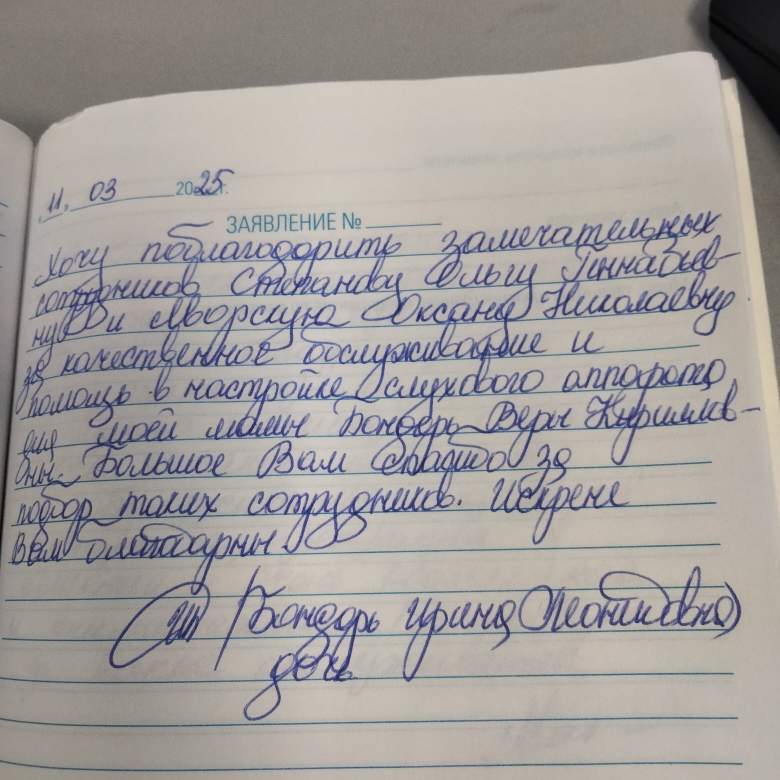 11. 03 2025г.
ЗАЯВЛЕНИЕ №
Хочу поблагодорить замечательных
сотрудников Степанову Ольгу Геннадьев-
ну и Яворскую Оксану Николаевну
за качественное обслуживание и
помощь в настройке слухового аппарата
для моей мамы Бондарь Веры Кирилов-
ны. Большое Вам спасибо за
подбор таких сотрудников. Искрене
Вам благодарны
(Бондарь Ирина Леонидовна)
дочь